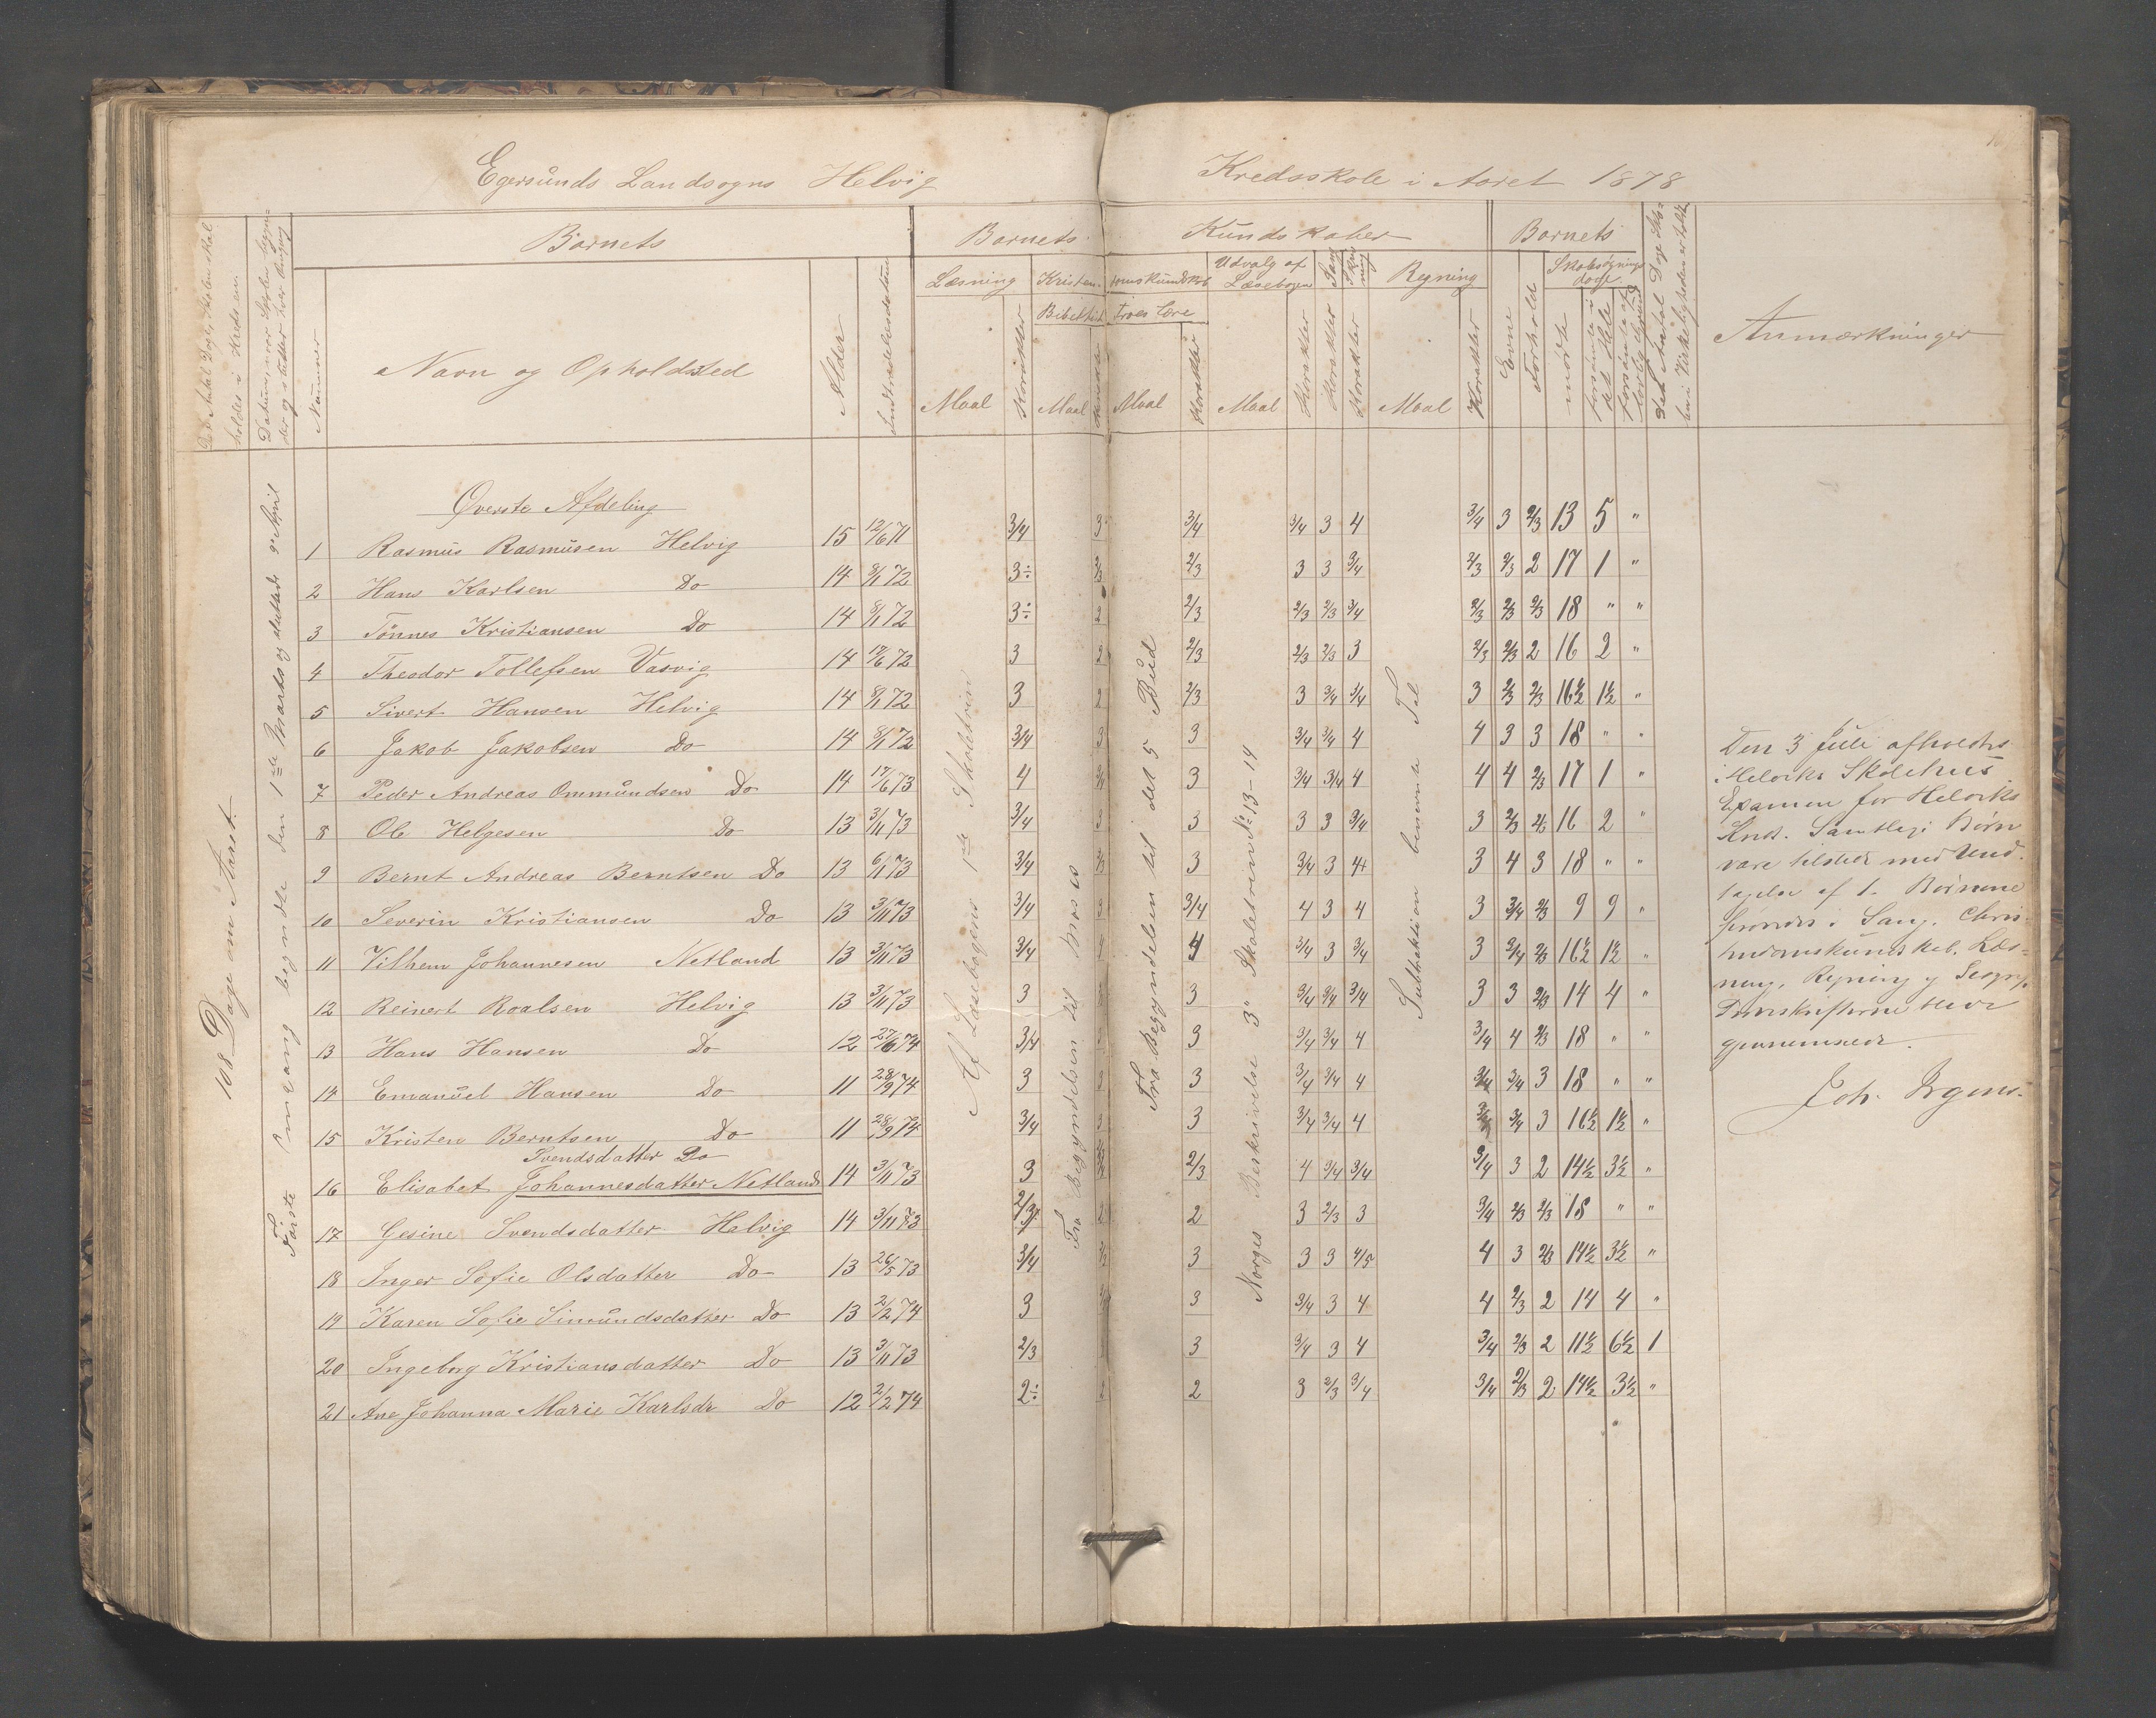 Egersunds Landsogns Helvig Kredsskole i Aaret 1878
Barnets Barnets Kundskaber Barnets
Læsning Kristen- domskundskab Udvalg af Læsebogen Sang Skriv- ning Regning Skolesøgnings dage
Bibelhist Troes Lære
Nummer Navn og Opholdssted Alder Indtrædelsesdatum Maal Karakter Maal Maal Karakter Maal Karakter Karakter Karakter Maal Karakter Evne Forhold mødte Anmærkninger
108 Dage om Aaret.
Første Omgang begyndte den 1ste Marts og sluttede 9de April
Øverste Afdeling
1 Rasmus Rasmusen Helvig 15 12/6 71 3/4 3 3/4 3/4 3 4 3/4 3 2/3 13 5 "
2 Hans Karlsen Do 14 8/1 72 3÷ 2/3 2/3 3 3 3/4 2/3 2/3 2 17 1 "
3 Tönnes Kristiansen Do 14 8/1 72 3÷ 2 2/3 2/3 2/3 3/4 2/3 2/3 2/3 18 " "
4 Theodor Tollefsen Vasvig 14 12/6 72 3 2 2/3 2/3 2/3 3 2/3 2/3 2 16 2 "
5 Sivert Hansen Helvig 14 8/1 72 3 2 2/3 3 3/4 3/4 3 2/3 2/3 16½ 1½ "
6 Jakob Jakobsen Do 14 8/1 72 3/4 3 3 3/4 3/4 4 4 3 3 18 " "
7 Peder Andreas Ommundsen Do 14 17/6 73 4 3/4 3 3/4 3/4 4 4 4 2/3 17 1 "
8 Ole Helgesen Do 13 3/11 73 3/4 3 3 3 3 3/4 3 2/3 2/3 16 2 "
9 Bernt Andreas Berntsen Do 13 6/1 73 3/4 2/3 3 3/4 3 4+ 3 4 3 18 " "
10 Severin Kristiansen Do 13 3/11 73 3/4 3 3/4 4 3 4 3 3/4 2/3 9 9 "
11 Vilhem Johannesen Netland 13 3/11 73 3/4 4 4 3/4 3 3/4 3 3/4 2/3 16½ 1½ "
12 Reinert Roalsen Helvig 13 3/11 73 3 3 3/4 3/4 3/4 3 3 2/3 14 4 "
13 Hans Hansen Do 12 27/6 74 3/4 3 3/4 3/4 4 3/4 4 2/3 18 " "
14 Emanuel Hansen Do 11 28/9 74 3 3 3/4 3/4 4 3/4 3/4 3 18 " "
15 Kristen Berntsen Do 11 28/9 74 3/4 3 3 3/4 3/4 4 3/4 3 16½ 1½ "
Svendsdatter Do
16 Elisabet Johannesdatter Netland 14 3/11 73 3 2/3 4 3/4 3/4 3/4 3 2 14½ 3½ "
17 Gesine Svendsdatter Helvig 14 3/11 73 2/3 2 2 3 2/3 3 3/4 2/3 2/3 18 " "
18 Inger Sofie Olsdatter Do 13 26/5 73 3/4 3 3 3 4/5 4 3 2/3 14½ 3½ "
19 Karen Sofie Simundsdatter Do 13 2/2 74 3 3 3/4 3 4 4 2/3 2 14 4 "
20 Ingeborg Kristiansdatter Do 13 3/11 73 2/3 3 3/4 3 4 3/4 2/3 2 11½ 6½ 1
21 Ane Johanna Marie Karlsdr Do 12 2/2 74 2÷ 2 2 3 2/3 3/4 3/4 2/3 2 14½ 3½ "
Af Læsebogens 1ste Skoletrin
Fra Begyndelsen til Moses
Fra Begyndelsen til det 5 Bud
Norges Beskrivelse 3die Skoletrin No 13-14
Subtraktion benevnte Tal
Den 3 Juli afholdtes
i Helviks Skolehus
Examen for Helviks
Kreds. Samtlige Børn
vare tilstede med Und-
tagelse af 1. Børnene
prøvedes i Sang, Chris-
tendomskundskab, Læs-
ning, Regning og Geogr.
Prøveskrifterne bleve
gjennemseede.
Joh. Irgens.